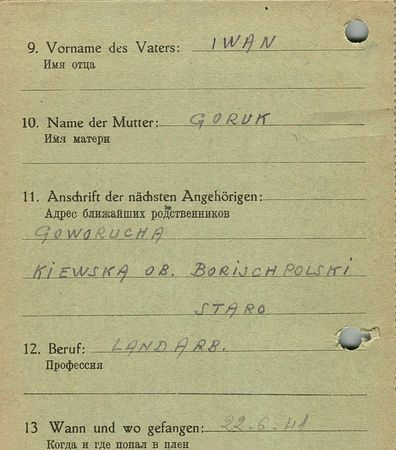 9. Vorname des Vaters: IWAN
Имя отца
10. Name der Mutter: GORUK
Имя матери
11. Anschrift der nächsten Angehörigen:
Адрес ближайших родственников
GOWORUCHA
KIEWSKA OB. BORISCHPOLSKI
STARO
12. Beruf: LANDARB.
Профессия
13 Wann und wo gefangen: 22.6.41
Когда и где попал в плен